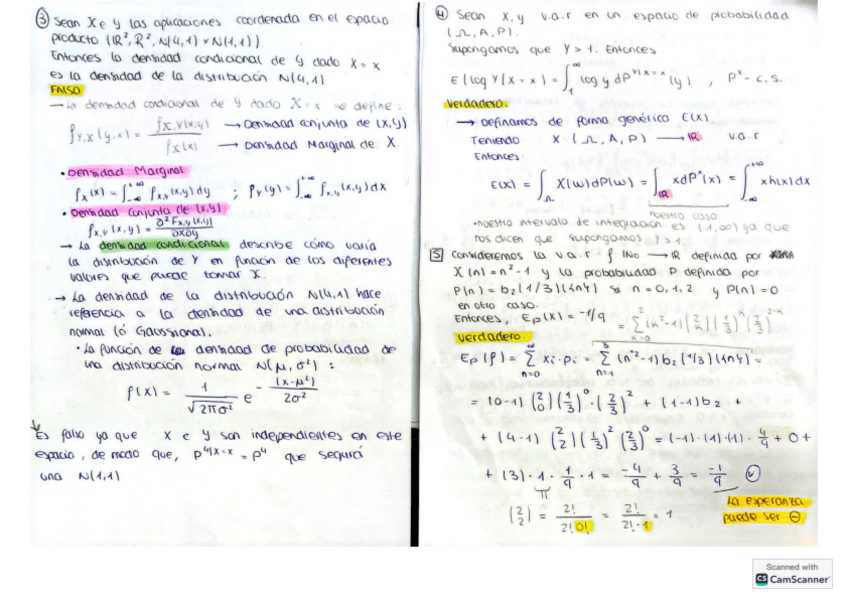 ③ Sean X e Y las aplicaciones coordenada en el espacio
producto (ℝ², R², N(4,1) × N(1,1)).
Entonces la densidad condicional de Y dado X = x
es la densidad de la distribución N(4,1)
FALSO
→ La densidad condicional de Y dado X = x se define:
f_{Y,X}(y,x) = f_{X,Y}(x,y) / f_X(x)
→ Densidad conjunta de (X,Y)
→ Densidad Marginal de X
• Densidad Marginal
f_X(x) = ∫_{-∞}^{+∞} f_{X,Y}(x,y) dy ; f_Y(y) = ∫_{-∞}^{+∞} f_{X,Y}(x,y) dx
• Densidad conjunta de (X,Y)
f_{X,Y}(x,y) = ∂²F_{X,Y}(x,y) / ∂x∂y
→ La densidad condicional describe cómo varía
la distribución de Y en función de los diferentes
valores que puede tomar X.
→ La densidad de la distribución N(4,1) hace
referencia a la densidad de una distribución
normal (ó Gaussiana).
• La función de densidad de probabilidad de
una distribución normal N(μ, σ²):
f(x) = 1/√(2πσ²) e - (x-μ²)/2σ²
Es falso ya que X e Y son independientes en este
espacio, de modo que, P^{Y|X=x} = P^Y que seguirá
una N(1,1)
④ Sean X, Y v.a.r en un espacio de probabilidad
(Ω, A, P).
Supongamos que Y > 1. Entonces
E(log Y | X = x) = ∫_1^∞ log y dP^{Y|X=x}(y) , P^X - c.s.
Verdadero.
→ Definamos de forma genérica E(X)
Teniendo X: (Ω, A, P) → ℝ v.a.r
Entonces:
E(X) = ∫_Ω X(ω)dP(ω) = ∫_ℝ xdP^X(x) = ∫_{-∞}^{+∞} xh(x)dx
nuestro caso
• nuestro intervalo de integración es (1,∞) ya que
nos dicen que supongamos Y > 1
5 Consideremos la v.a.r f: ℕo → ℝ definida por
X(n) = n² - 1 y la probabilidad P definida por
P(n) = b₂(1/3)({n}) si n = 0, 1, 2 y P(n) = 0
en otro caso.
Entonces, E_P(X) = -1/9 = Σ_{k=0}^{2} (k²-1) (2 k) (1/3)^k (2/3)^{2-k}
verdadero.
E_P(f) = Σ_{n=0}^{∞} xi · pi = Σ (n²-1) b₂ (1/3)({n}) =
= (0-1) (2 0) (1/3)⁰ · (2/3)² + (1-1) b₂ +
+ (4-1) (2 2) (1/3)² (2/3)⁰ = (-1) · (1) · (1) · 4/9 + 0 +
+ (3) · 1 · 1/9 · 1 = -4/9 + 3/9 = -1/9
(2 2) = 2!/2!0! = 2!/2!·1 = 1
La esperanza
puede ser ⊖
Scanned with
CS CamScanner